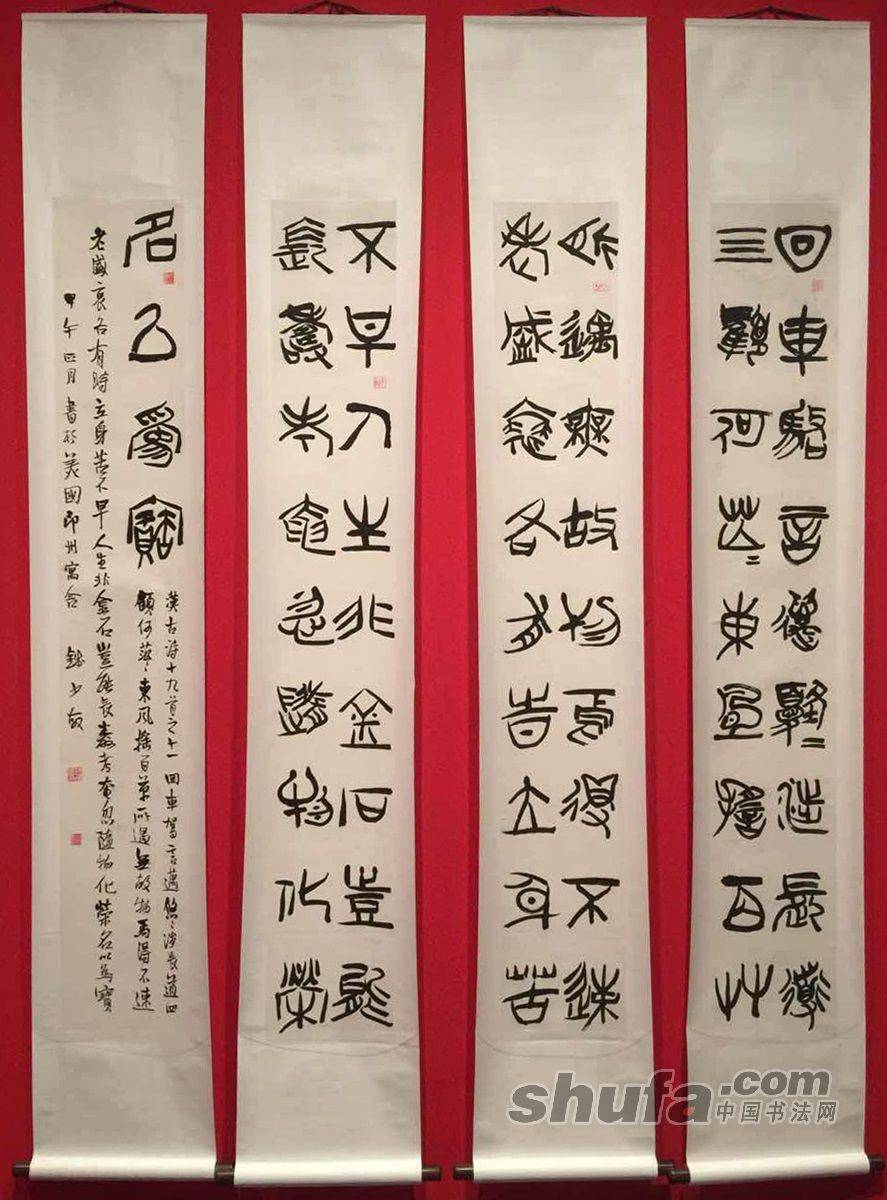 回車駕言邁悠〻涉長道
四顧何茫〻東風搖百艸
所遇無故物焉得不速
老盛衰各有時立身苦
不早人生非金石豈能
長壽考奄忽隨物化榮
名以為寶
漢古詩十九首之十一 回車駕言邁悠〻涉長道四
顧何茫〻東風搖百草所遇無故物焉得不速
老盛衰各有時立身苦不早人生非金石豈能長壽考奄忽隨物化榮名以為寶
甲午 月書於美國印州寓舍
shufa.com
中国书法网